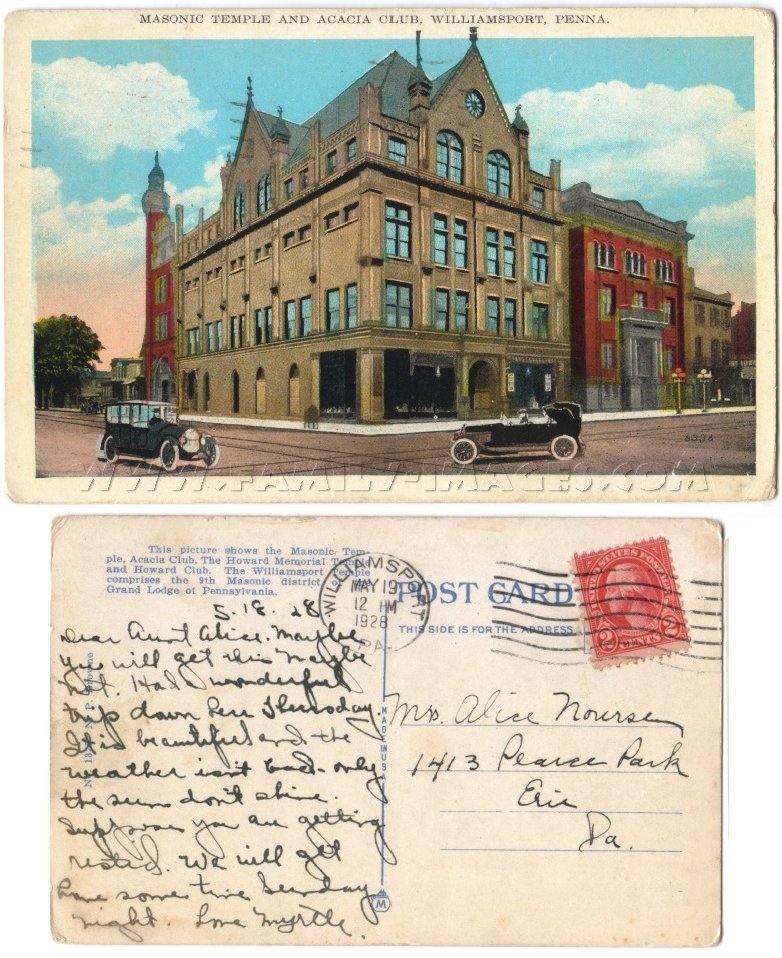 MASONIC TEMPLE AND ACACIA CLUB, WILLIAMSPORT, PENNA.
8338
WWW.FAMILY-IMAGES.COM
This picture shows the Masonic Tem-
ple, Acacia Club, The Howard Memorial Temple
and Howard Club. The Williamsport Temple
comprises the 9th Masonic district of the
Grand Lodge of Pennsylvania.
5.18.28
Dear Aunt Alice. Maybe
you will get this Maybe
not. Had wonderful
trip down here Thursday.
It is beautiful and the
weather isn't bad only
the sun don't shine.
Suppose you are getting
rested. We will get
home some time Sunday
night. Love Myrtle.
N. P. Browne
MADE IN USA
M
WILLIAMSPORT
MAY 19
12 PM
1928
PA.
POST CARD
THIS SIDE IS FOR THE ADDRESS
UNITED STATES POSTAGE
2 CENTS 2
Mrs. Alice Nourse
1413 Pearce Park
Erie
Pa.